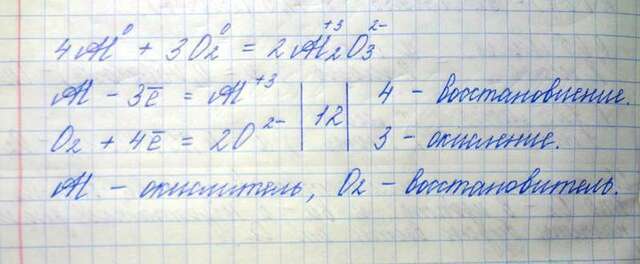 4Al⁰ + 3O₂⁰ = 2Al₂⁺³O₃²⁻
Al - 3ē = Al⁺³ | 12 | 4 - восстановление.
O₂ + 4ē = 2O²⁻ | 3 - окисление.
Al - окислитель, O₂ - восстановитель.